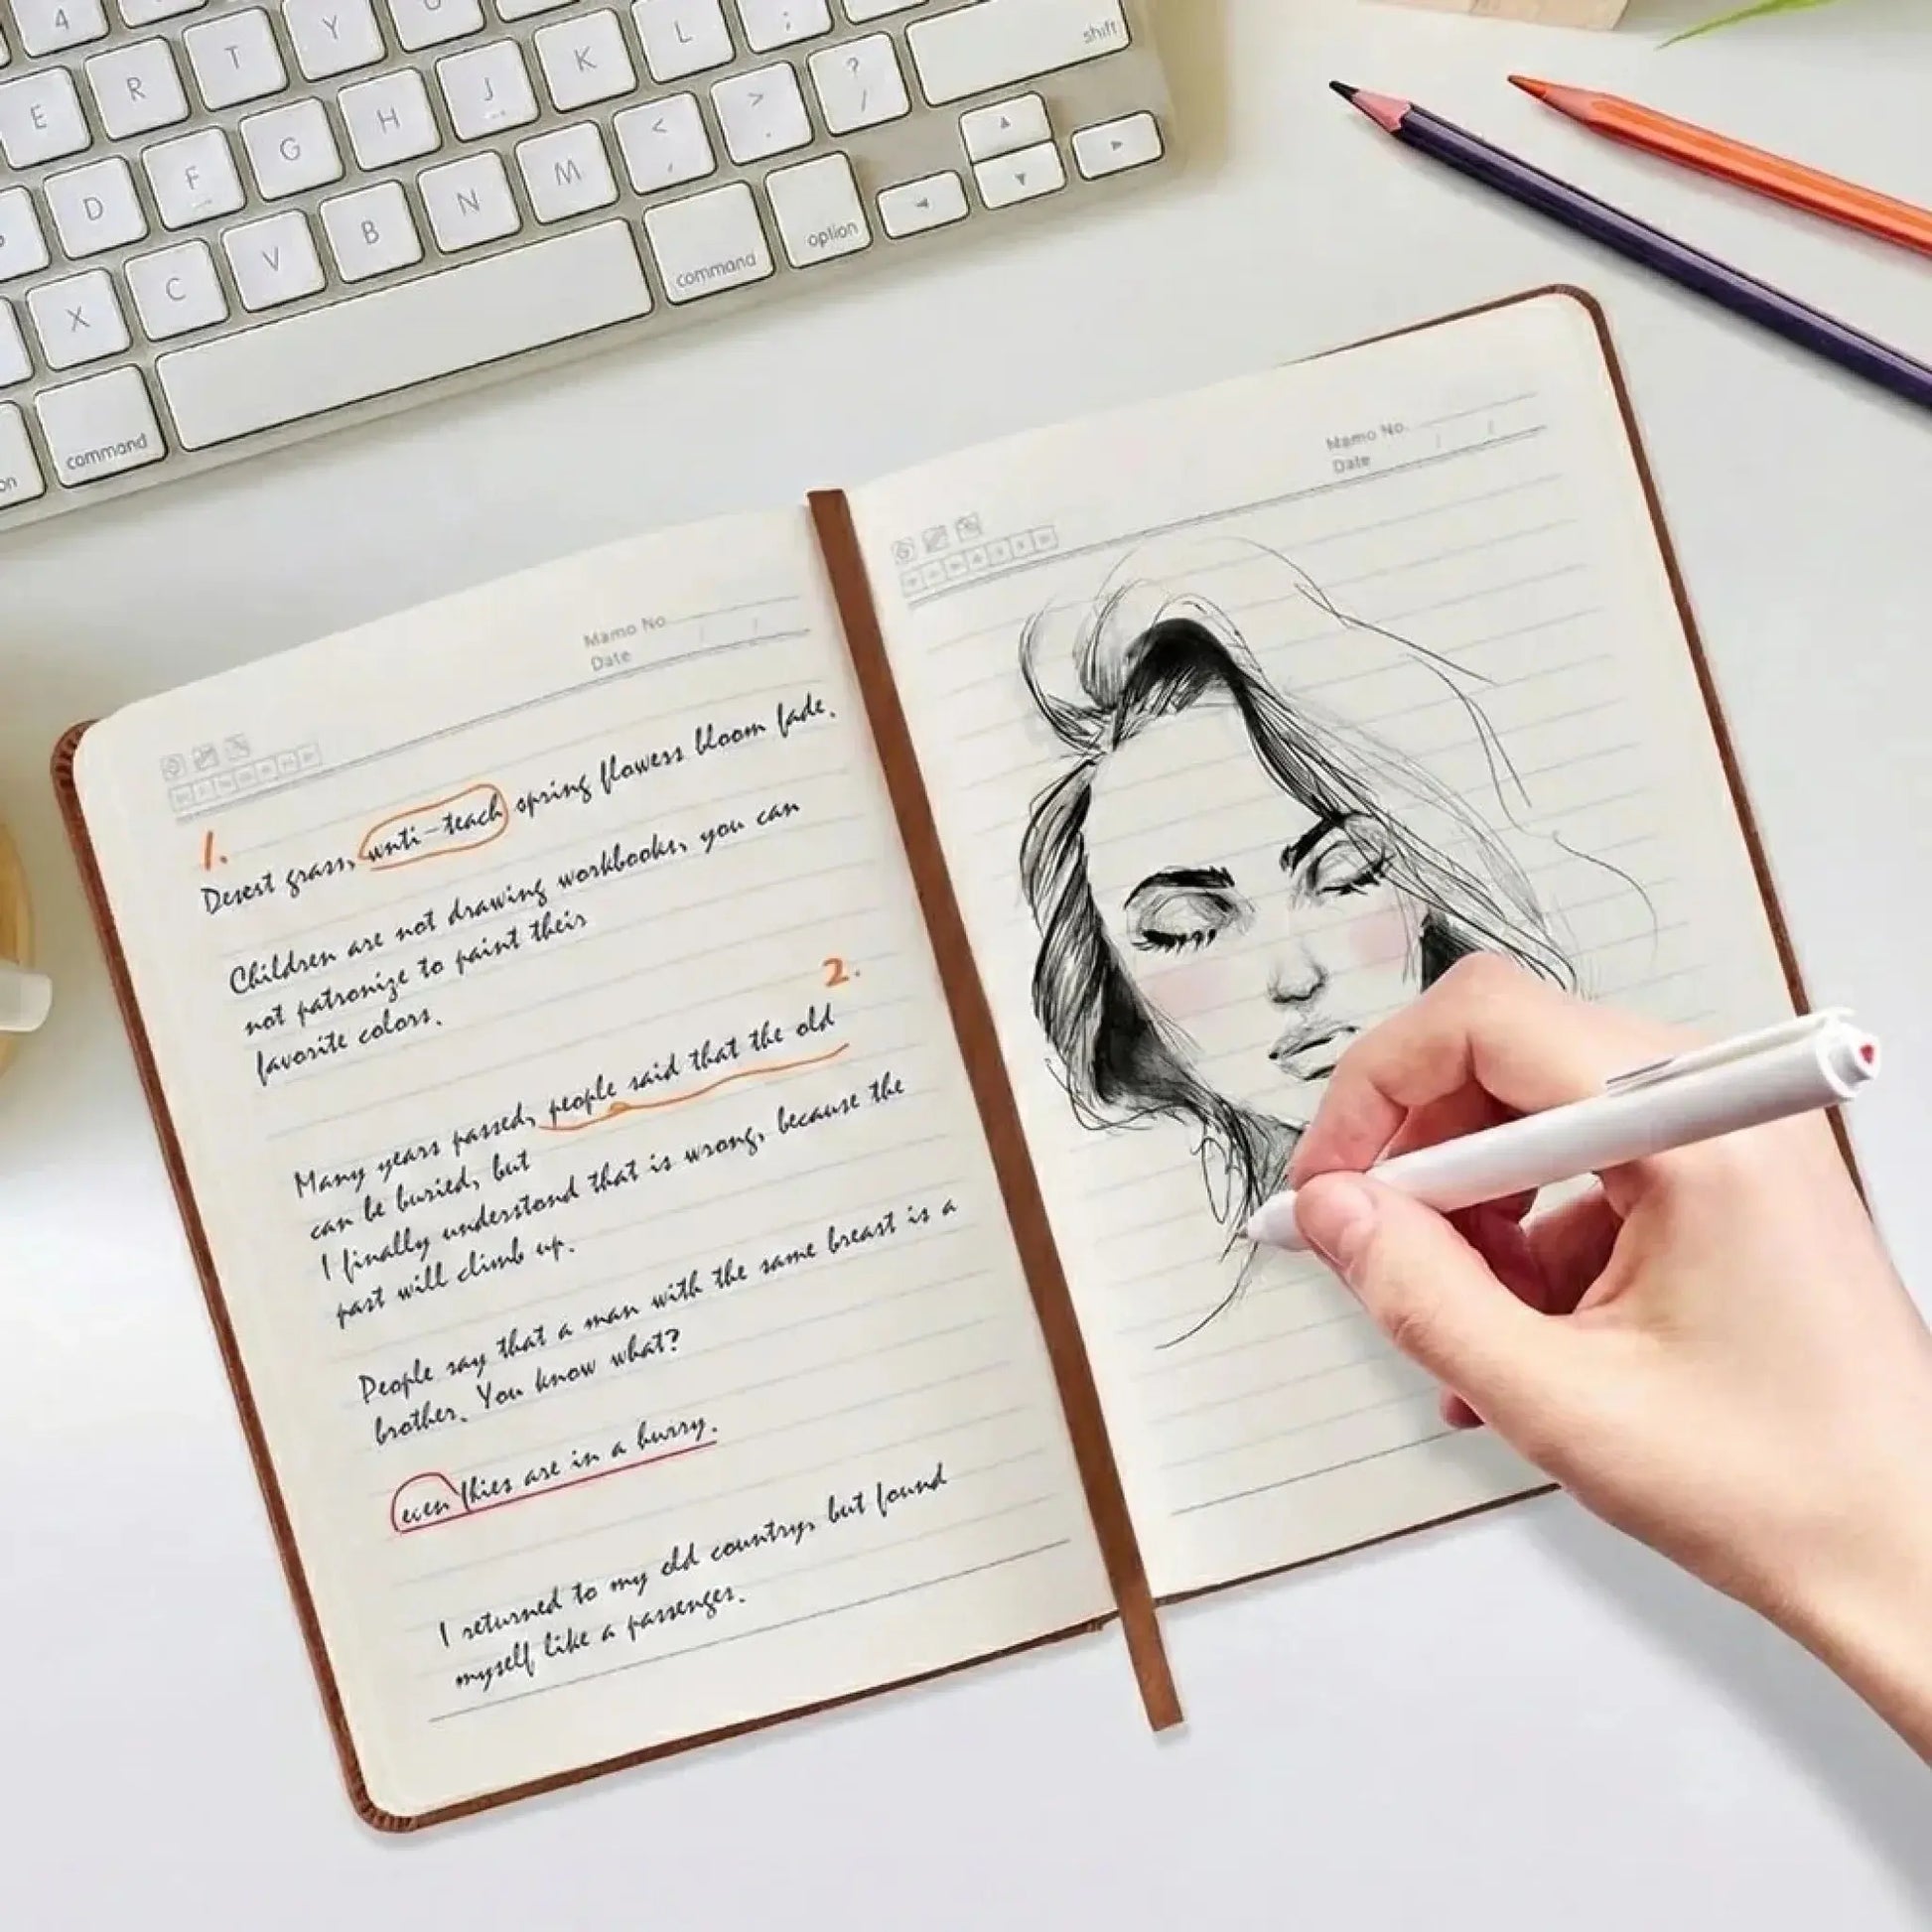 4
E R T Y
D F G H J K L ;
shift
X C V B N M < , > . ? /
command
command option
Mamo No.
Date
Mamo No
Date
1.
Desert grass, wnti-teach spring flowers bloom fade.
Children are not drawing workbooks, you can
not patronize to paint their
favorite colors.
2.
Many years passed, people said that the old
can be buried, but
I finally understond that is wrong, because the
past will climb up.
People say that a man with the same breast is a
brother. You know what?
even are in a hurry.
I returned to my old country, but found
myself like a passenger.